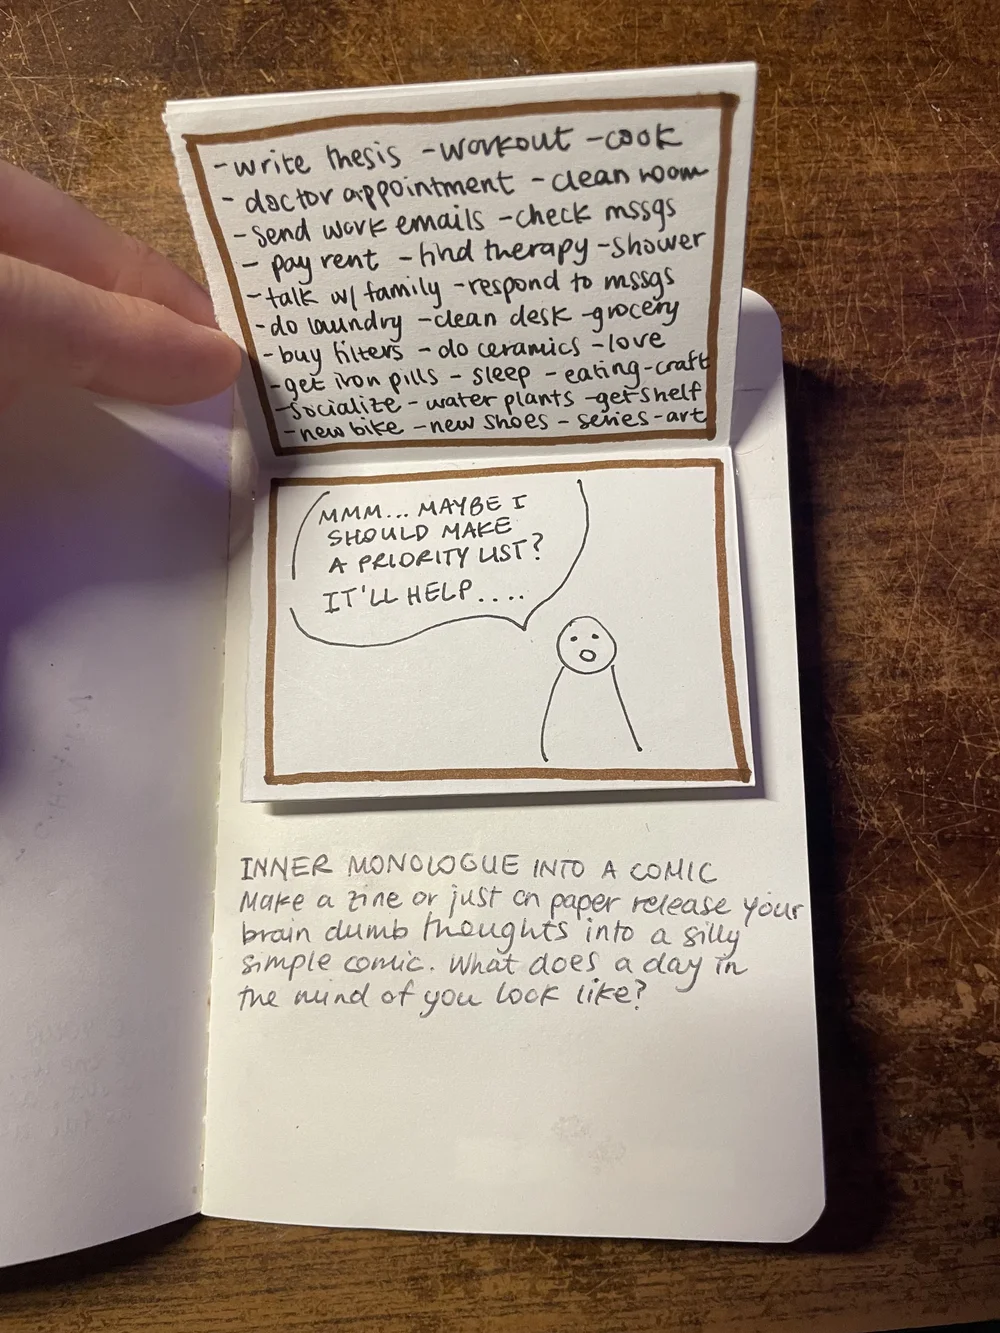 - write thesis - workout - cook
- doctor appointment - clean room
- send work emails - check mssgs
- pay rent - find therapy - shower
- talk w/ family - respond to mssgs
- do laundry - clean desk - grocery
- buy filters - do ceramics - love
- get iron pills - sleep - eating - craft
- socialize - water plants - get shelf
- new bike - new shoes - series - art
MMM... MAYBE I
SHOULD MAKE
A PRIORITY LIST?
IT'LL HELP....
INNER MONOLOGUE INTO A COMIC
Make a zine or just on paper release your
brain dumb thoughts into a silly
simple comic. What does a day in
the mind of you look like?